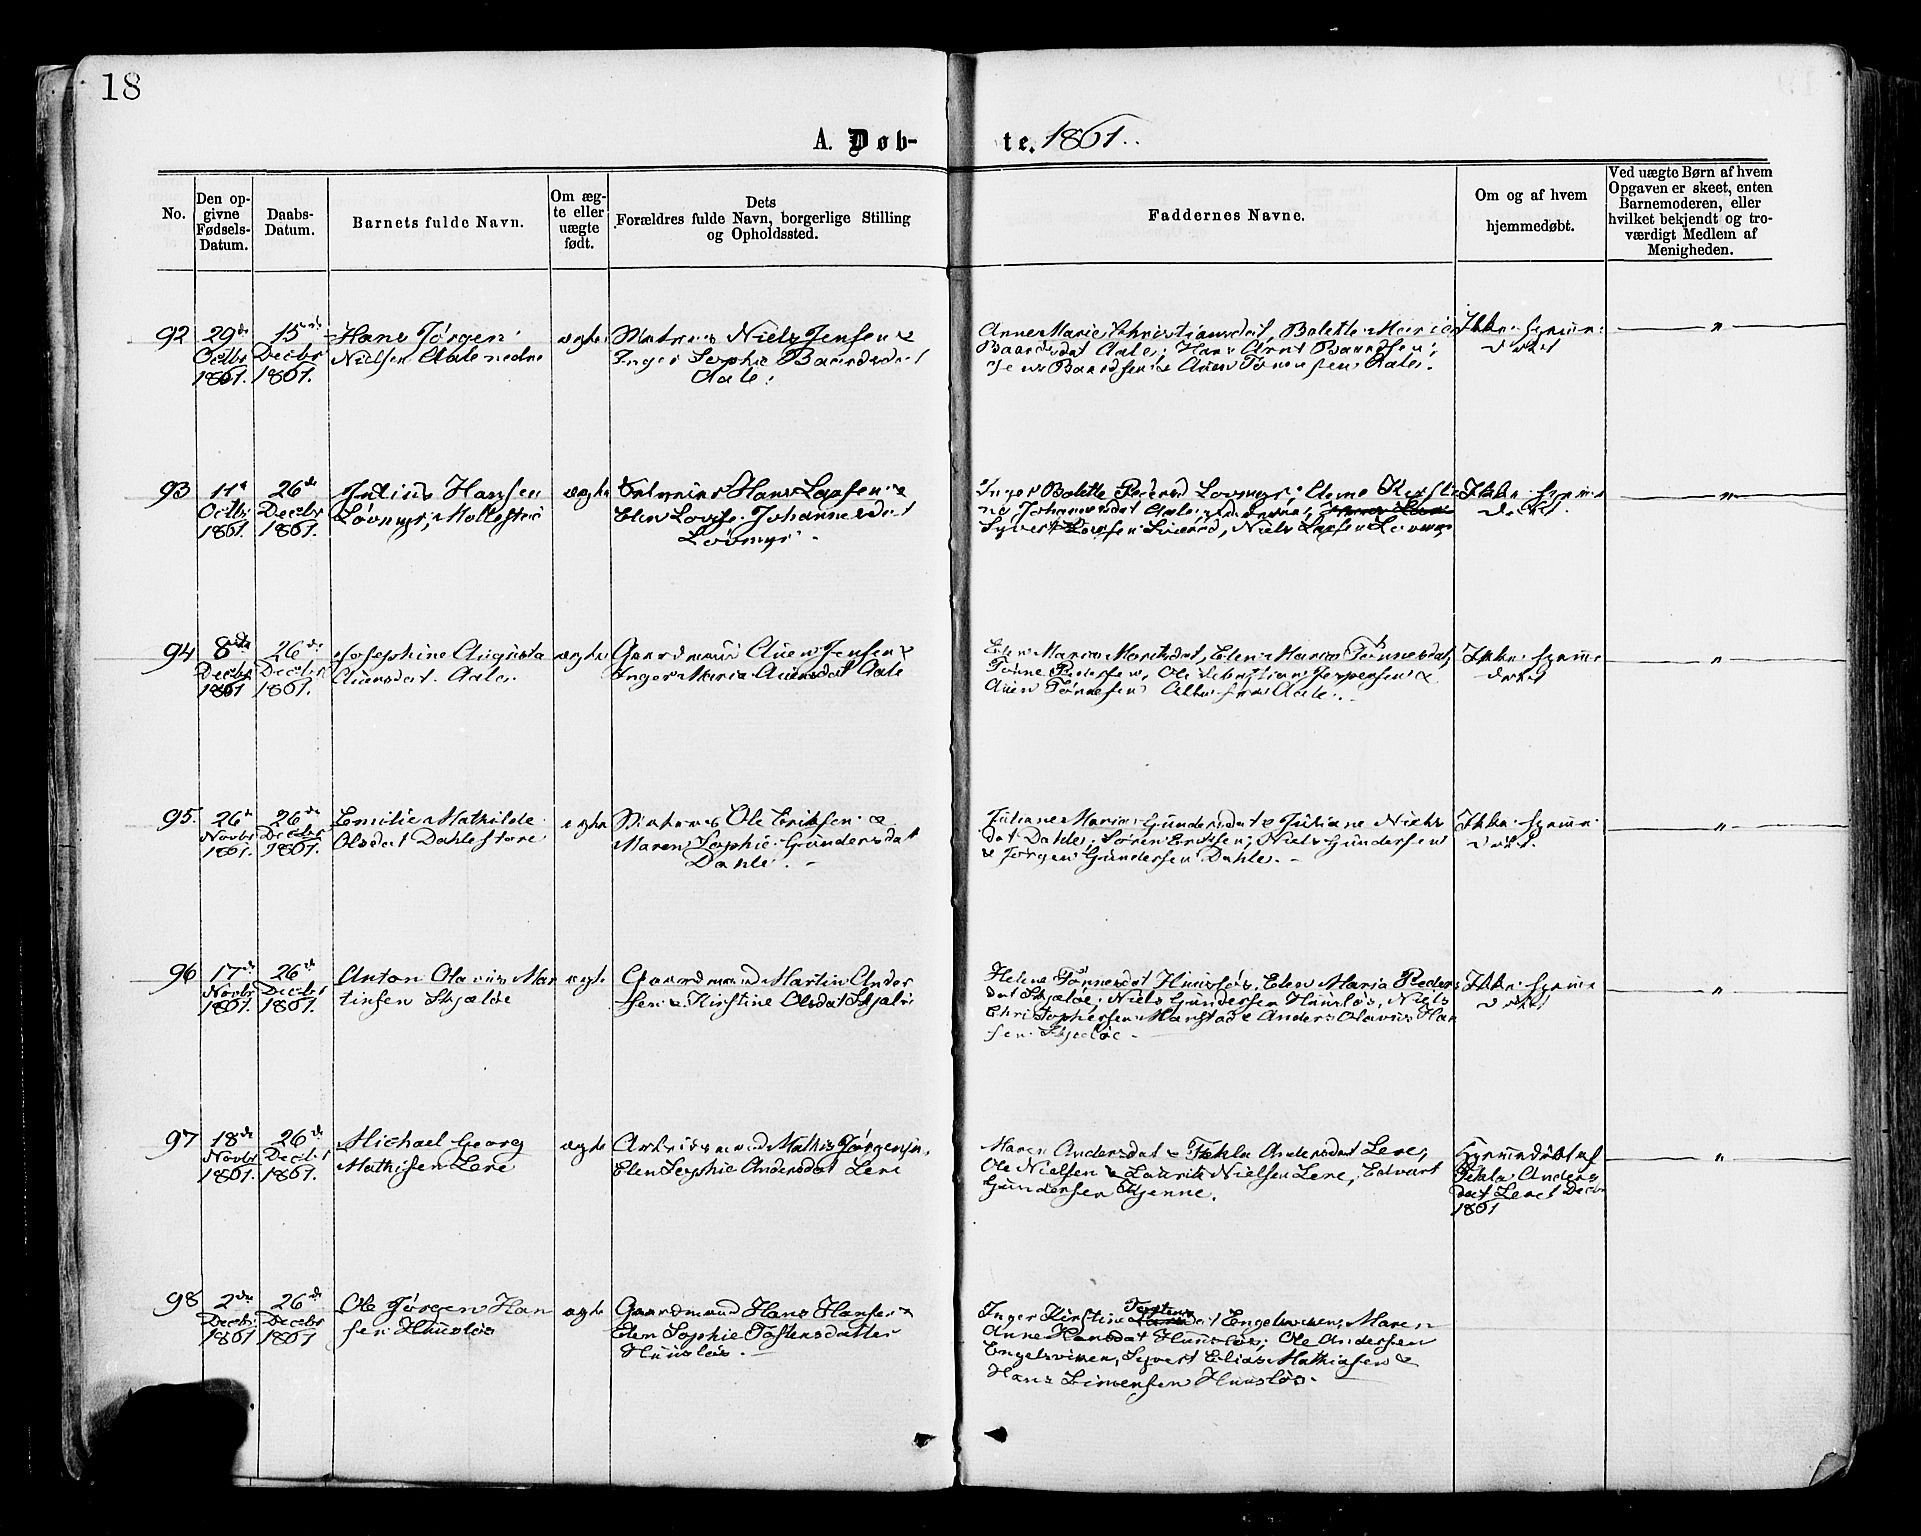 18
A. Døb-
te. 1861.
No.
Den op-
givne
Fødsels-
Datum.
Daabs-
Datum.
Barnets fulde Navn.
Om æg-
te eller
uægte
født.
Dets
Forældres fulde Navn, borgerlige Stilling
og Opholdssted.
Faddernes Navne.
Om og af hvem
hjemmedøbt.
Ved uægte Børn af hvem
Opgaven er skeet, enten
Barnemoderen, eller
hvilket bekjendt og tro-
værdigt Medlem af
Menigheden.
92
29de
Octbr
1861.
15de
Decbr
1861.
Hans Jørgen
Nielsen Aale nedre
ægte
Niels Jensen &
Inger Sophie Baardsdat
Aale.
Anne Marie Christiansdat, Bolette Marie
Baardsdat Aale, Hans Arnt Baardsen,
Jens Baardsen & Auen Tønnesen Aale.
Ikke hjemme
døbt
"
93
11te
Octbr
1861.
26de
Decbr
1861.
Julius Hansen
Løvmyr,
ægte
Hans Larsen &
Elen Lovise Johannesdat
Løvmyr.
Inger Bolette Pedersd Lovmyr, Anne Kirsti
ne Johannesdat Aale,
Syvert Larsen Niels Larsen
Ikke hjemme
døbt.
"
94
8de
Decbr
1861
26de
Decbr
1861.
Josephine Augusta
Auensdat. Aale.
ægte
Gaardmand Auen Jensen &
Inger Maria Auensdat Aale
Elen Maria Moritsdat, Elen Maria Tønnesdat,
Tønne Pedersen, Ole Christian Jespersen &
Auen Tønnesen Aale.
Ikke hjemme
døbt
"
95.
26de
Novbr
1861.
26de
Decbr
1861.
Emilie Mathilde
Olsdat Dahle store
ægte
Ole Eriksen &
Maren Sophie Gundersdat
Dahle.
Juliane Marie Gundersdat & Juliane Niels
dat Dahle, Søren Eriksen, Niels Gundersen
& Jørgen Gundersen Dahle.
Ikke hjemme
døbt.
"
96
17de
Novbr
1861.
26de
Decbr
1861.
Anton Olavus Mar
tinsen Skjæløe
ægte
Gaardmand Martin Ander
sen & Kirstine Olsdat Skjæløe
Helene Tønnesdat Huusløs, Elen Maria Peders
dat Skjæløe, Niels Gundersen Huusløs, Niels
Christophersen Marstad & Anders Olavus Han
sen Skjeløe
Ikke hjemme
døbt
"
97
18de
Novbr
1861.
26de
Decbr
1861.
Michael Georg
Mathisen Lere
ægte
Arbeidsmand Mathis Jørgensen,
Elen Sophie Andersdat Lere
Maren Andersdat & Thekla Andersdat Lere,
Ole Nielsen & Laurits Nielsen Lere, Edvart
Gundersen
Hjemmedøbt af
Tekla Anders
dat Lere 1 Decbr
1861
"
98
2den
Decbr
1861
26de
Decbr
1861
Ole Jørgen Han
sen Huusløs
ægte
Gaardmand Hans Hansen &
Elen Sophie Tostensdatter
Huusløs.
Inger Kirstine Tostensdat Engelsviken, Maren
Anne Hansdat Huusløs, Ole Andersen
Engelsviken, Syvert Elias Mathiasen &
Hans Simensen Huusløs.